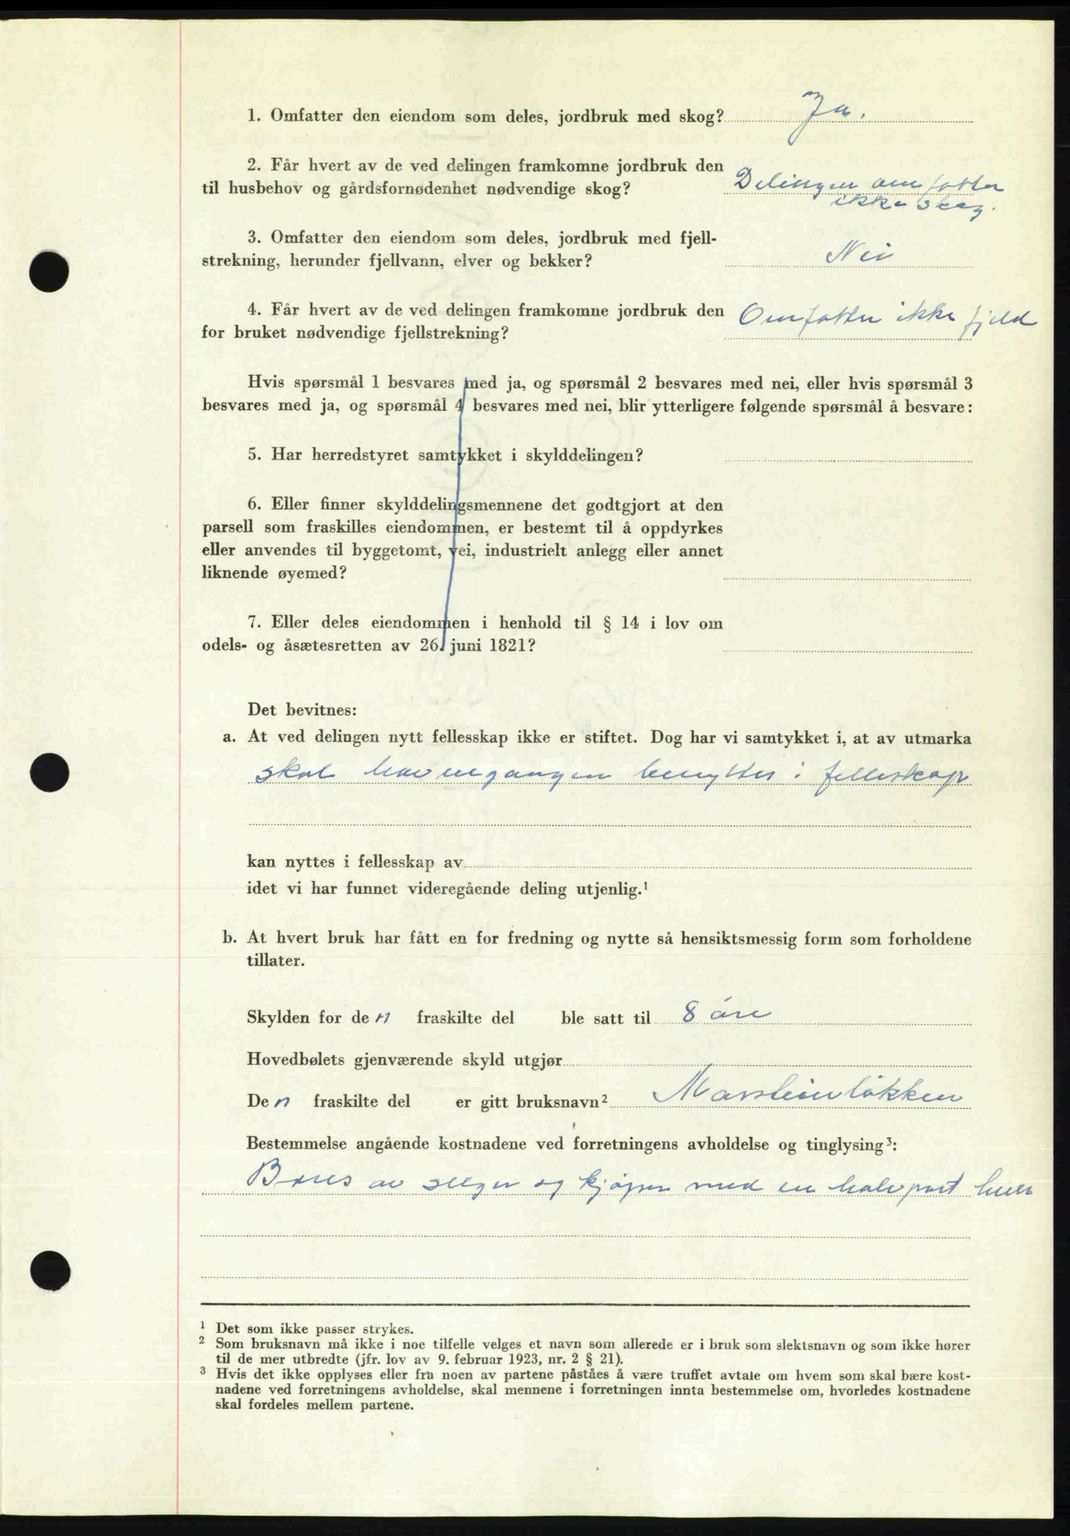 1. Omfatter den eiendom som deles, jordbruk med skog? Ja.
2. Får hvert av de ved delingen framkomne jordbruk den
til husbehov og gårdsfornødenhet nødvendige skog? Delingen omfatter
ikke skog.
3. Omfatter den eiendom som deles, jordbruk med fjell-
strekning, herunder fjellvann, elver og bekker? Nei
4. Får hvert av de ved delingen framkomne jordbruk den
for bruket nødvendige fjellstrekning? Omfatter ikke fjeld
Hvis spørsmål 1 besvares med ja, og spørsmål 2 besvares med nei, eller hvis spørsmål 3
besvares med ja, og spørsmål 4 besvares med nei, blir ytterligere følgende spørsmål å besvare:
5. Har herredstyret samtykket i skylddelingen?
6. Eller finner skylddelingsmennene det godtgjort at den
parsell som fraskilles eiendommen, er bestemt til å oppdyrkes
eller anvendes til byggetomt, vei, industrielt anlegg eller annet
liknende øyemed?
7. Eller deles eiendommen i henhold til § 14 i lov om
odels- og åsætesretten av 26. juni 1821?
Det bevitnes:
a. At ved delingen nytt fellesskap ikke er stiftet. Dog har vi samtykket i, at av utmarka
skal havnegangen benyttes i felleskap
kan nyttes i fellesskap av
idet vi har funnet videregående deling utjenlig.¹
b. At hvert bruk har fått en for fredning og nytte så hensiktsmessig form som forholdene
tillater.
Skylden for den fraskilte del ble satt til 8 øre
Hovedbølets gjenværende skyld utgjør
Den fraskilte del er gitt bruksnavn² Marsteinløkken
Bestemmelse angående kostnadene ved forretningens avholdelse og tinglysing³:
Bæres av selger og kjøper med en halvpart hver
¹ Det som ikke passer strykes.
² Som bruksnavn må ikke i noe tilfelle velges et navn som allerede er i bruk som slektsnavn og som ikke hører
til de mer utbredte (jfr. lov av 9. februar 1923, nr. 2 § 21).
³ Hvis det ikke opplyses eller fra noen av partene påståes å være truffet avtale om hvem som skal bære kost-
nadene ved forretningens avholdelse, skal mennene i forretningen innta bestemmelse om, hvorledes kostnadene
skal fordeles mellem partene.